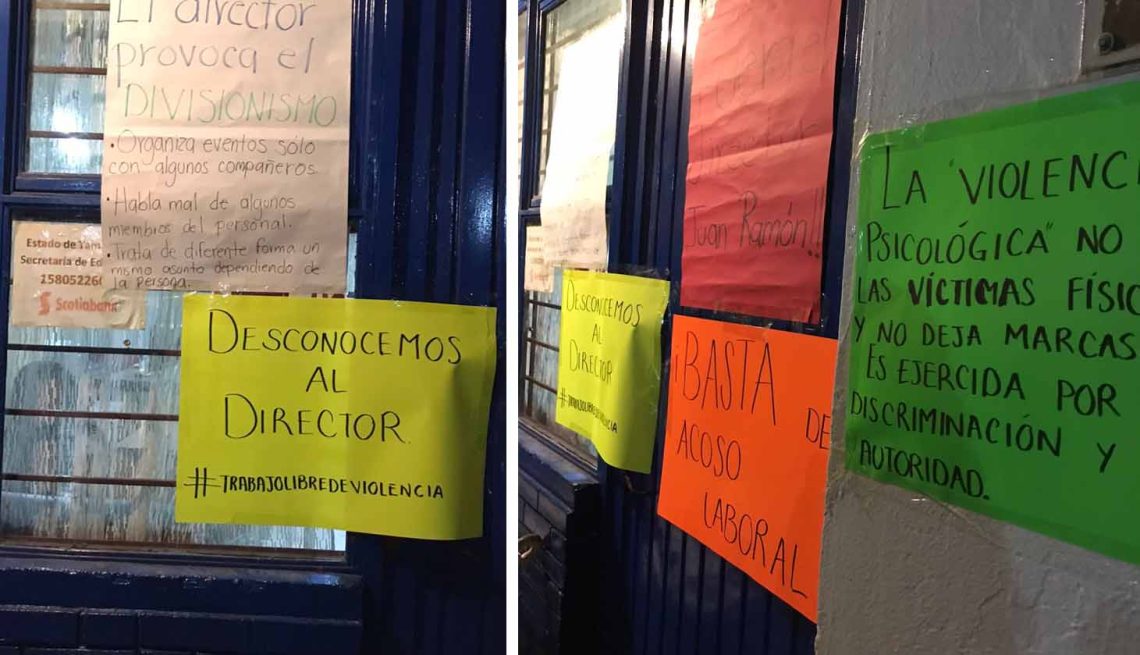 El director
provoca el
DIVISIONISMO
• Organiza eventos sólo
con algunos compañeros.
• Habla mal de algunos
miembros del personal.
• Trata de diferente forma un
mismo asunto dependiendo de
la persona.
Estado de Tam
Secretaria de Ed
15805226
Scotiabank
DESCONOCEMOS
AL
DIRECTOR.
#TRABAJOLIBREDEVIOLENCIA
DESCONOCEMOS
AL
DIRECTOR
#TRABAJOLIBREDEVIOLENCIA
Juan Ramón!!
¡BASTA DE
ACOSO
LABORAL
LA "VIOLENCI
PSICOLÓGICA" NO
LAS VÍCTIMAS FÍSIC
Y NO DEJA MARCAS
ES EJERCIDA POR
DISCRIMINACIÓN Y
AUTORIDAD.